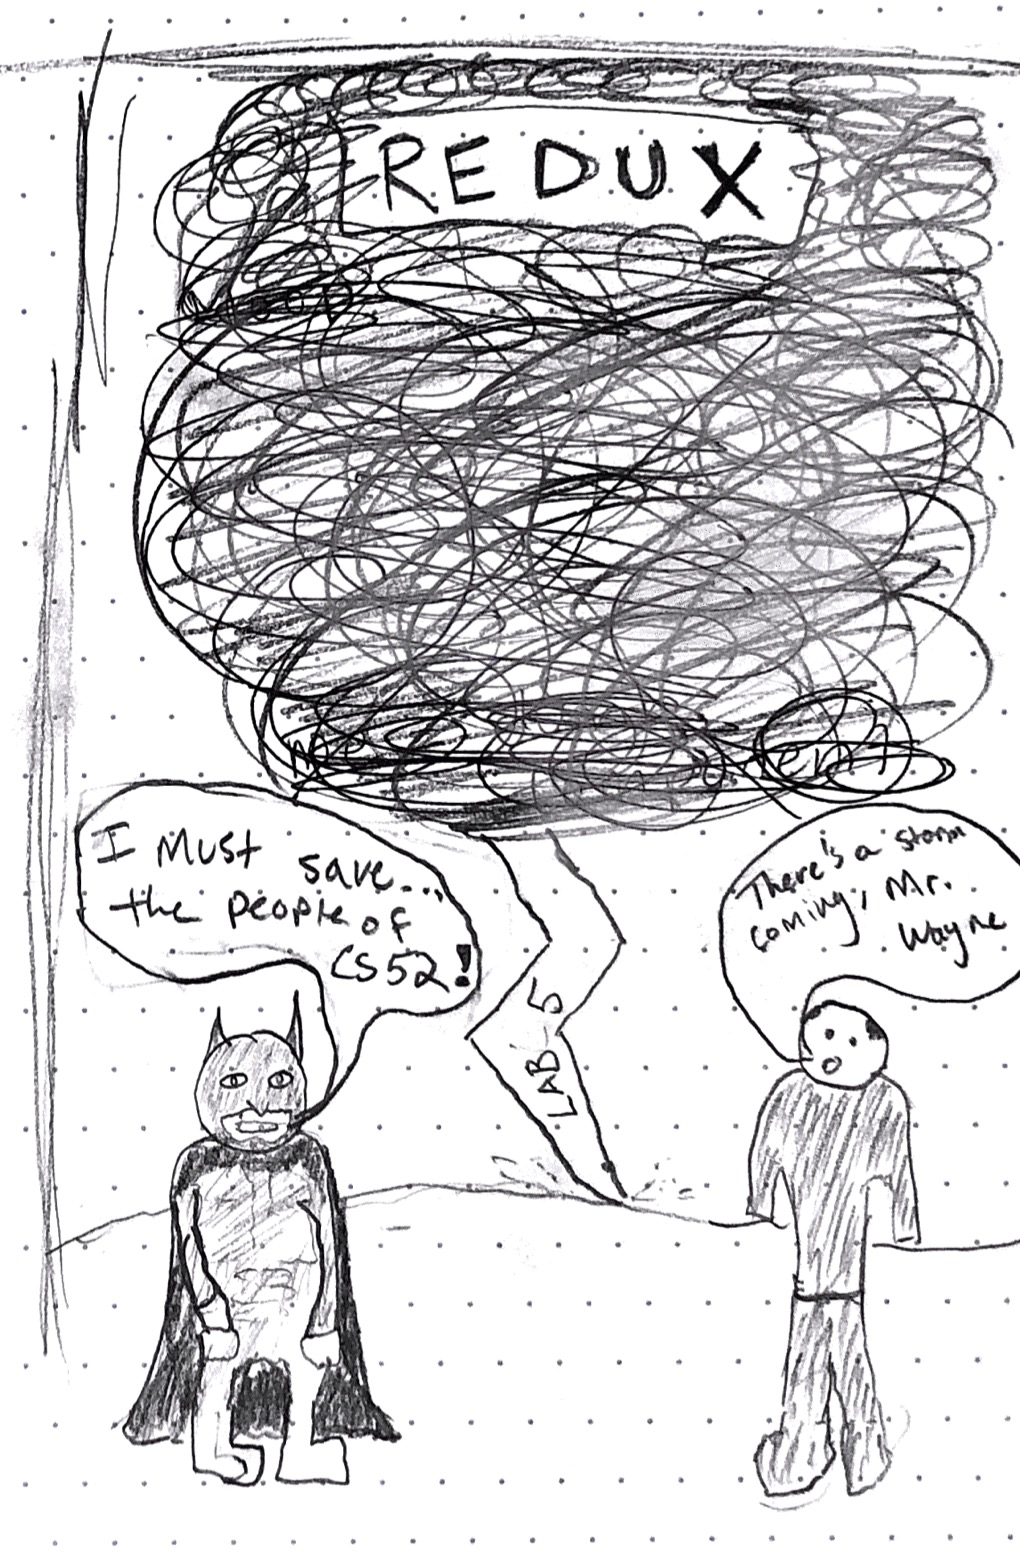 REDUX
I Must save...
the people of
CS52!
There's a storm
coming, Mr.
Wayne
LAB 5